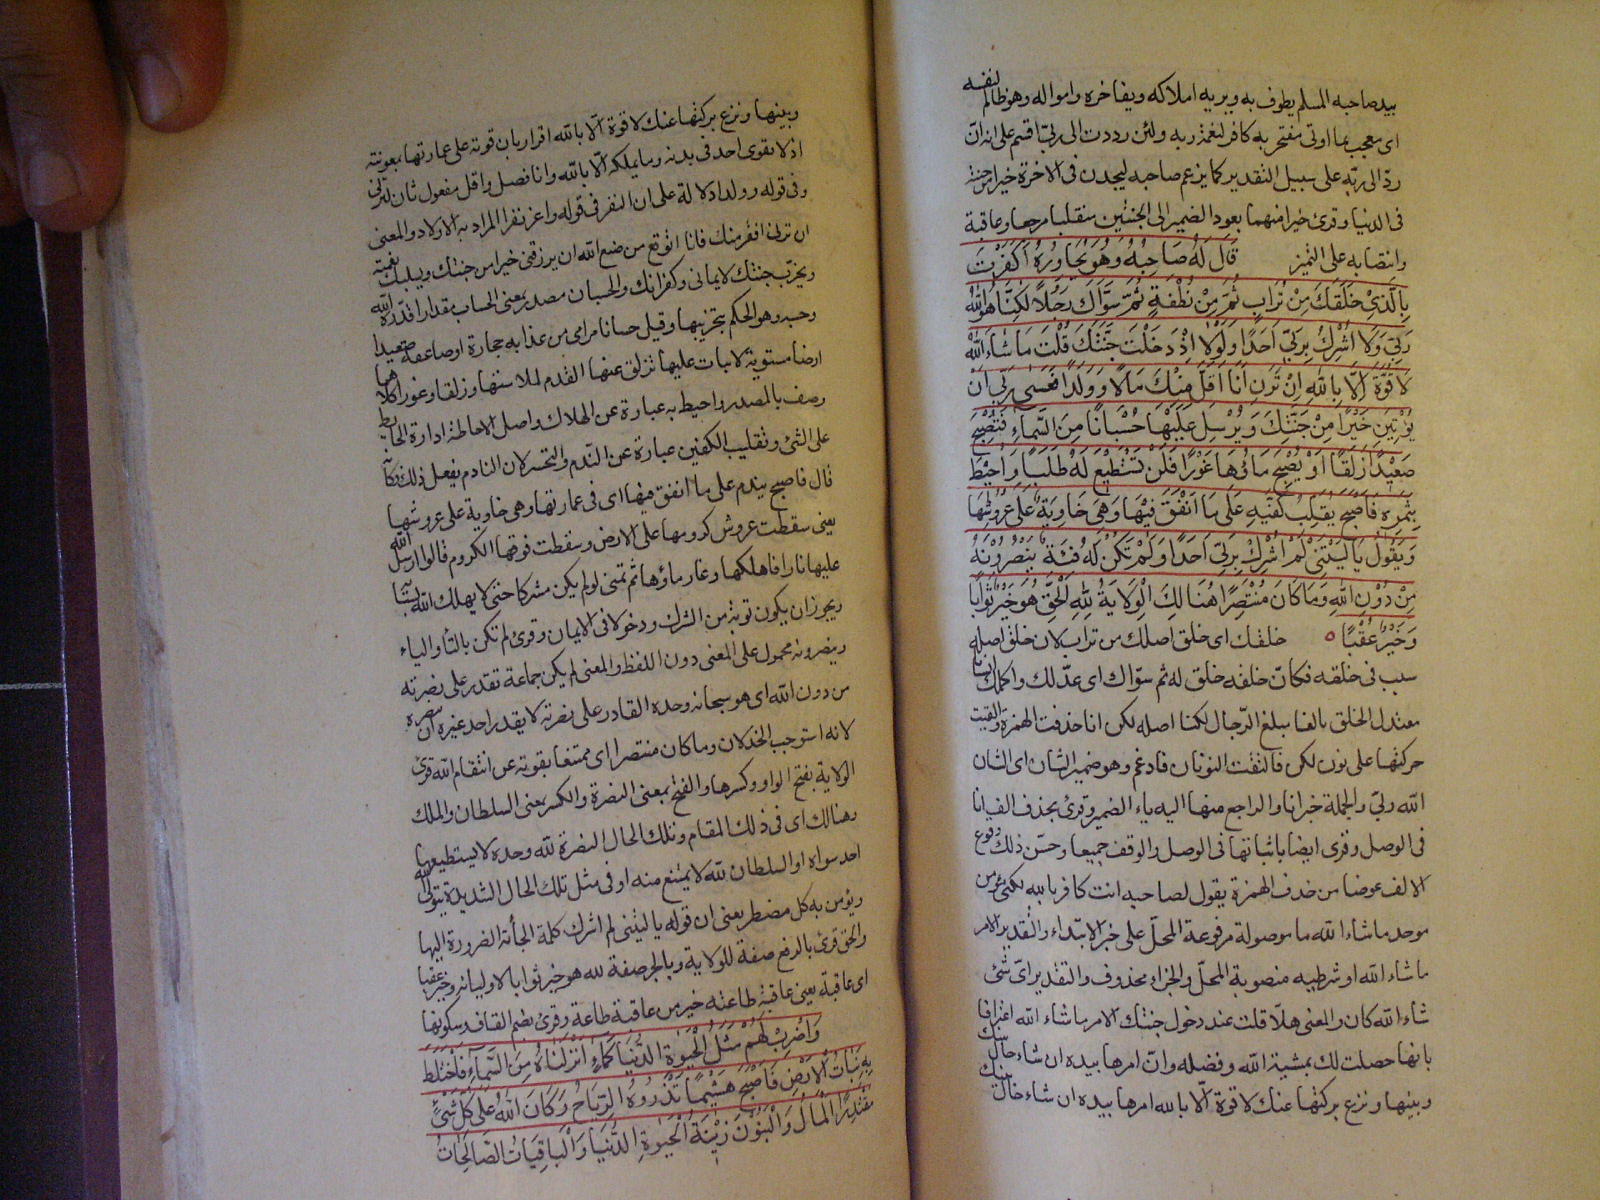 بيد صاحبه المسلم يطوف به ويريه املاكه ويفاخره وامواله وهو ظالم لنفسه
اى معجب بما اوتى مفتخر به كافر لنعمة ربه ولئن رددت الى ربى اقسم على انه ان
ردّ الى ربّه على سبيل التقدير كما يزعم صاحبه ليجدن فى الاخرة خيرا من جنته
فى الدنيا وقرئ خيرا منهما بعود الضمير الى الجنتين منقلبا مرجعا وعاقبة
وانتصابه على التميز قَالَ لَهُ صَاحِبُهُ وَهُوَ يُحَاوِرُهُ اَكَفَرْتَ
بِالَّذِىْ خَلَقَكَ مِنْ تُرَابٍ ثُمَّ مِنْ نُطْفَةٍ ثُمَّ سَوَّاكَ رَجُلًا لٰكِنَّا هُوَ اللّٰهُ
رَبِّىْ وَلَا اُشْرِكُ بِرَبِّىْ اَحَدًا وَلَوْلَا اِذْ دَخَلْتَ جَنَّتَكَ قُلْتَ مَا شَاءَ اللّٰهُ
لَا قُوَّةَ اِلَّا بِاللّٰهِ اِنْ تَرَنِ اَنَا اَقَلَّ مِنْكَ مَالًا وَوَلَدًا فَعَسٰى رَبِّىْ اَنْ
يُؤْتِيَنِ خَيْرًا مِنْ جَنَّتِكَ وَيُرْسِلَ عَلَيْهَا حُسْبَانًا مِنَ السَّمَاءِ فَتُصْبِحَ
صَعِيْدًا زَلَقًا اَوْ يُصْبِحَ مَاؤُهَا غَوْرًا فَلَنْ تَسْتَطِيْعَ لَهُ طَلَبًا وَاُحِيْطَ
بِثَمَرِهِ فَاَصْبَحَ يُقَلِّبُ كَفَّيْهِ عَلٰى مَا اَنْفَقَ فِيْهَا وَهِىَ خَاوِيَةٌ عَلٰى عُرُوْشِهَا
وَيَقُوْلُ يَالَيْتَنِىْ لَمْ اُشْرِكْ بِرَبِّىْ اَحَدًا وَلَمْ تَكُنْ لَهُ فِئَةٌ يَنْصُرُوْنَهُ
مِنْ دُوْنِ اللّٰهِ وَمَا كَانَ مُنْتَصِرًا هُنَالِكَ الْوَلَايَةُ لِلّٰهِ الْحَقِّ هُوَ خَيْرٌ ثَوَابًا
وَخَيْرٌ عُقْبًا خلقك اى خلق اصلك من تراب لان خلق اصله
سبب فى خلقه فكانّ خلقه خلق له ثم سوّاك اى عدّلك واكملك انسانا
معتدل الخلق بالغا مبلغ الرّجال لكنا اصله لكن انا حذفت الهمزة والقيت
حركتها على نون لكن فالتقت النونان فادغم وهو ضمير الشان اى الشان
الله ربّى والجملة خبر انا والراجع منها اليه ياء الضمير وقرئ بحذف الف انا
فى الوصل وقرئ ايضا باثباتها فى الوصل والوقف جميعا وحسّن ذلك وقوع
الالف عوضا من حذف الهمزة يقول لصاحبه انت كافر بالله لكنى مؤمن
موحد ما شاء الله ما موصولة مرفوعة المحلّ على خبر الابتداء والتقدير الامر
ما شاء الله او شرطيه منصوبة المحلّ والجزاء محذوف والتقدير اىّ شئ
شاء الله كان والمعنى هلّا قلت عند دخول جنتك الامر ما شاء الله اعترافا
بانها حصلت لك بمشية الله وفضله وانّ امرها بيده ان شاء حال بينك
وبينها ونزع بركتها عنك لا قوة الّا بالله امرها بيده ان شاء حال بينك
وبينها ونزع بركتها عنك لا قوة الّا بالله اقرار بان قوته على عمارتها بمعونته
اذ لا يقوى احد فى بدنه وما يملكه الّا بالله وانا فصل واقل مفعول ثان لترنى
وفى قوله وولدا دلالة على ان النفر فى قوله واعز نفرا المراد به الاولاد والمعنى
ان ترنى افقر منك فانا اتوقع من صنع الله ان يرزقنى خيرا من جنتك ويسلبك نعمته
ويخرّب جنتك لايمانى وكفرانك والحسبان مصدر بمعنى الحساب مقدارا قدّره الله
وحسبه وهو الحكم بتخريبها وقيل حسبانا مرامى من عذابه حجارة او صاعقة صعيدا
ارضا مستوية لا نبات عليها تزلق عنها القدم لملاستها وزلقا وغورا كلاهما
وصف بالمصدر واحيط به عبارة عن الهلاك واصل الاحاطة ادارة الحائط
على الشئ وتقليب الكفين عبارة عن النّدم والتحسر لان النادم يفعل ذلك فكانّه
قال فاصبح يندم على ما انفق فيها اى فى عمارتها وهى خاوية على عروشها
يعنى سقطت عروش كرومها على الارض وسقطت فوقها الكروم قالوا ارسل الله
عليها نارا فاهلكها وغار ماؤها ثم تمنى لو لم يكن مشركا حتى لا يهلك الله بستانه
ويجوز ان يكون توبة من الشرك ودخولا فى الايمان وقرئ لم تكن بالتاء والياء
وينصرونه محمول على المعنى دون اللفظ والمعنى لم يكن جماعة تقدر على نصرته
من دون الله اى هو سبحانه وحده القادر على نصرته لا يقدر احد غيره ان ينصره
لانه استوجب الخذلان وما كان منتصرا اى ممتنعا بقوته عن انتقام الله قرئ
الولاية بفتح الواو وكسرها والفتح بمعنى النصرة والكسر بمعنى السلطان والملك
وهنالك اى فى ذلك المقام وتلك الحال النصرة لله وحده لا يستطيعها
احد سواه او السلطان لله لا يمتنع منه او فى مثل تلك الحال الشديدة يتولى الله
ويؤمن به كل مضطر يعنى ان قوله يا ليتنى لم اشرك كلمة الجأته الضرورة اليها
والحق قرئ بالرفع صفة للولاية وبالجر صفة لله هو خير ثوابا لاوليائه وخير عقبا
اى عاقبة يعنى عاقبة طاعته خير من عاقبة طاعة وقرئ بضم القاف وسكونها
وَاضْرِبْ لَهُمْ مَثَلَ الْحَيٰوةِ الدُّنْيَا كَمَاءٍ اَنْزَلْنَاهُ مِنَ السَّمَاءِ فَاخْتَلَطَ
بِهِ نَبَاتُ الْاَرْضِ فَاَصْبَحَ هَشِيْمًا تَذْرُوْهُ الرِّيَاحُ وَكَانَ اللّٰهُ عَلٰى كُلِّ شَىْءٍ
مُقْتَدِرًا اَلْمَالُ وَالْبَنُوْنَ زِيْنَةُ الْحَيٰوةِ الدُّنْيَا وَالْبَاقِيَاتُ الصَّالِحَاتُ